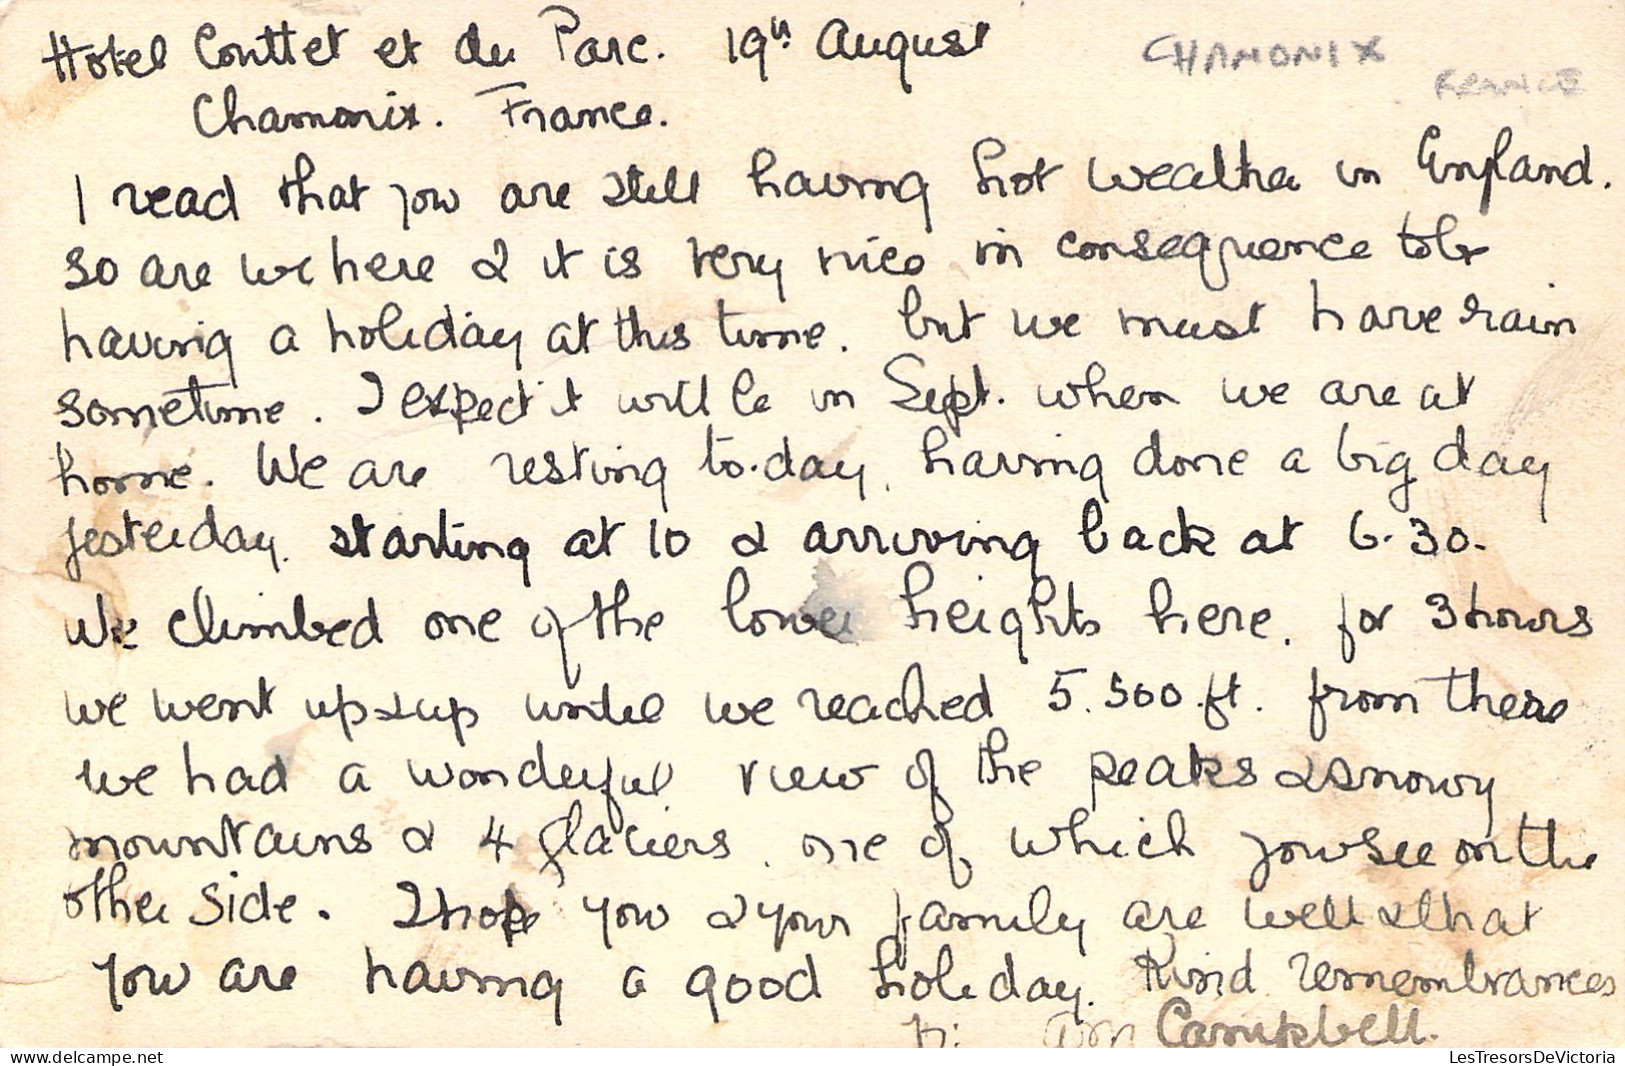 Hotel Couttet et du Parc. 19th August
CHAMONIX
FRANCE
Chamonix. France.
I read that you are still having hot weather in England.
so are we here & it is very nice in consequence to be
having a holiday at this time. but we must have rain
sometime. I expect it will be in Sept. when we are at
home. We are resting to-day, having done a big day
yesterday. starting at 10 & arriving back at 6.30.
We climbed one of the lower heights here. for 3 hours
we went up & up until we reached 5.500 ft. from there
we had a wonderful view of the peaks & snowy
mountains & 4 glaciers, one of which you see on the
other side. I hope you & your family are well & that
you are having a good holiday. Kind remembrances
Campbell.
LesTresorsDeVictoria